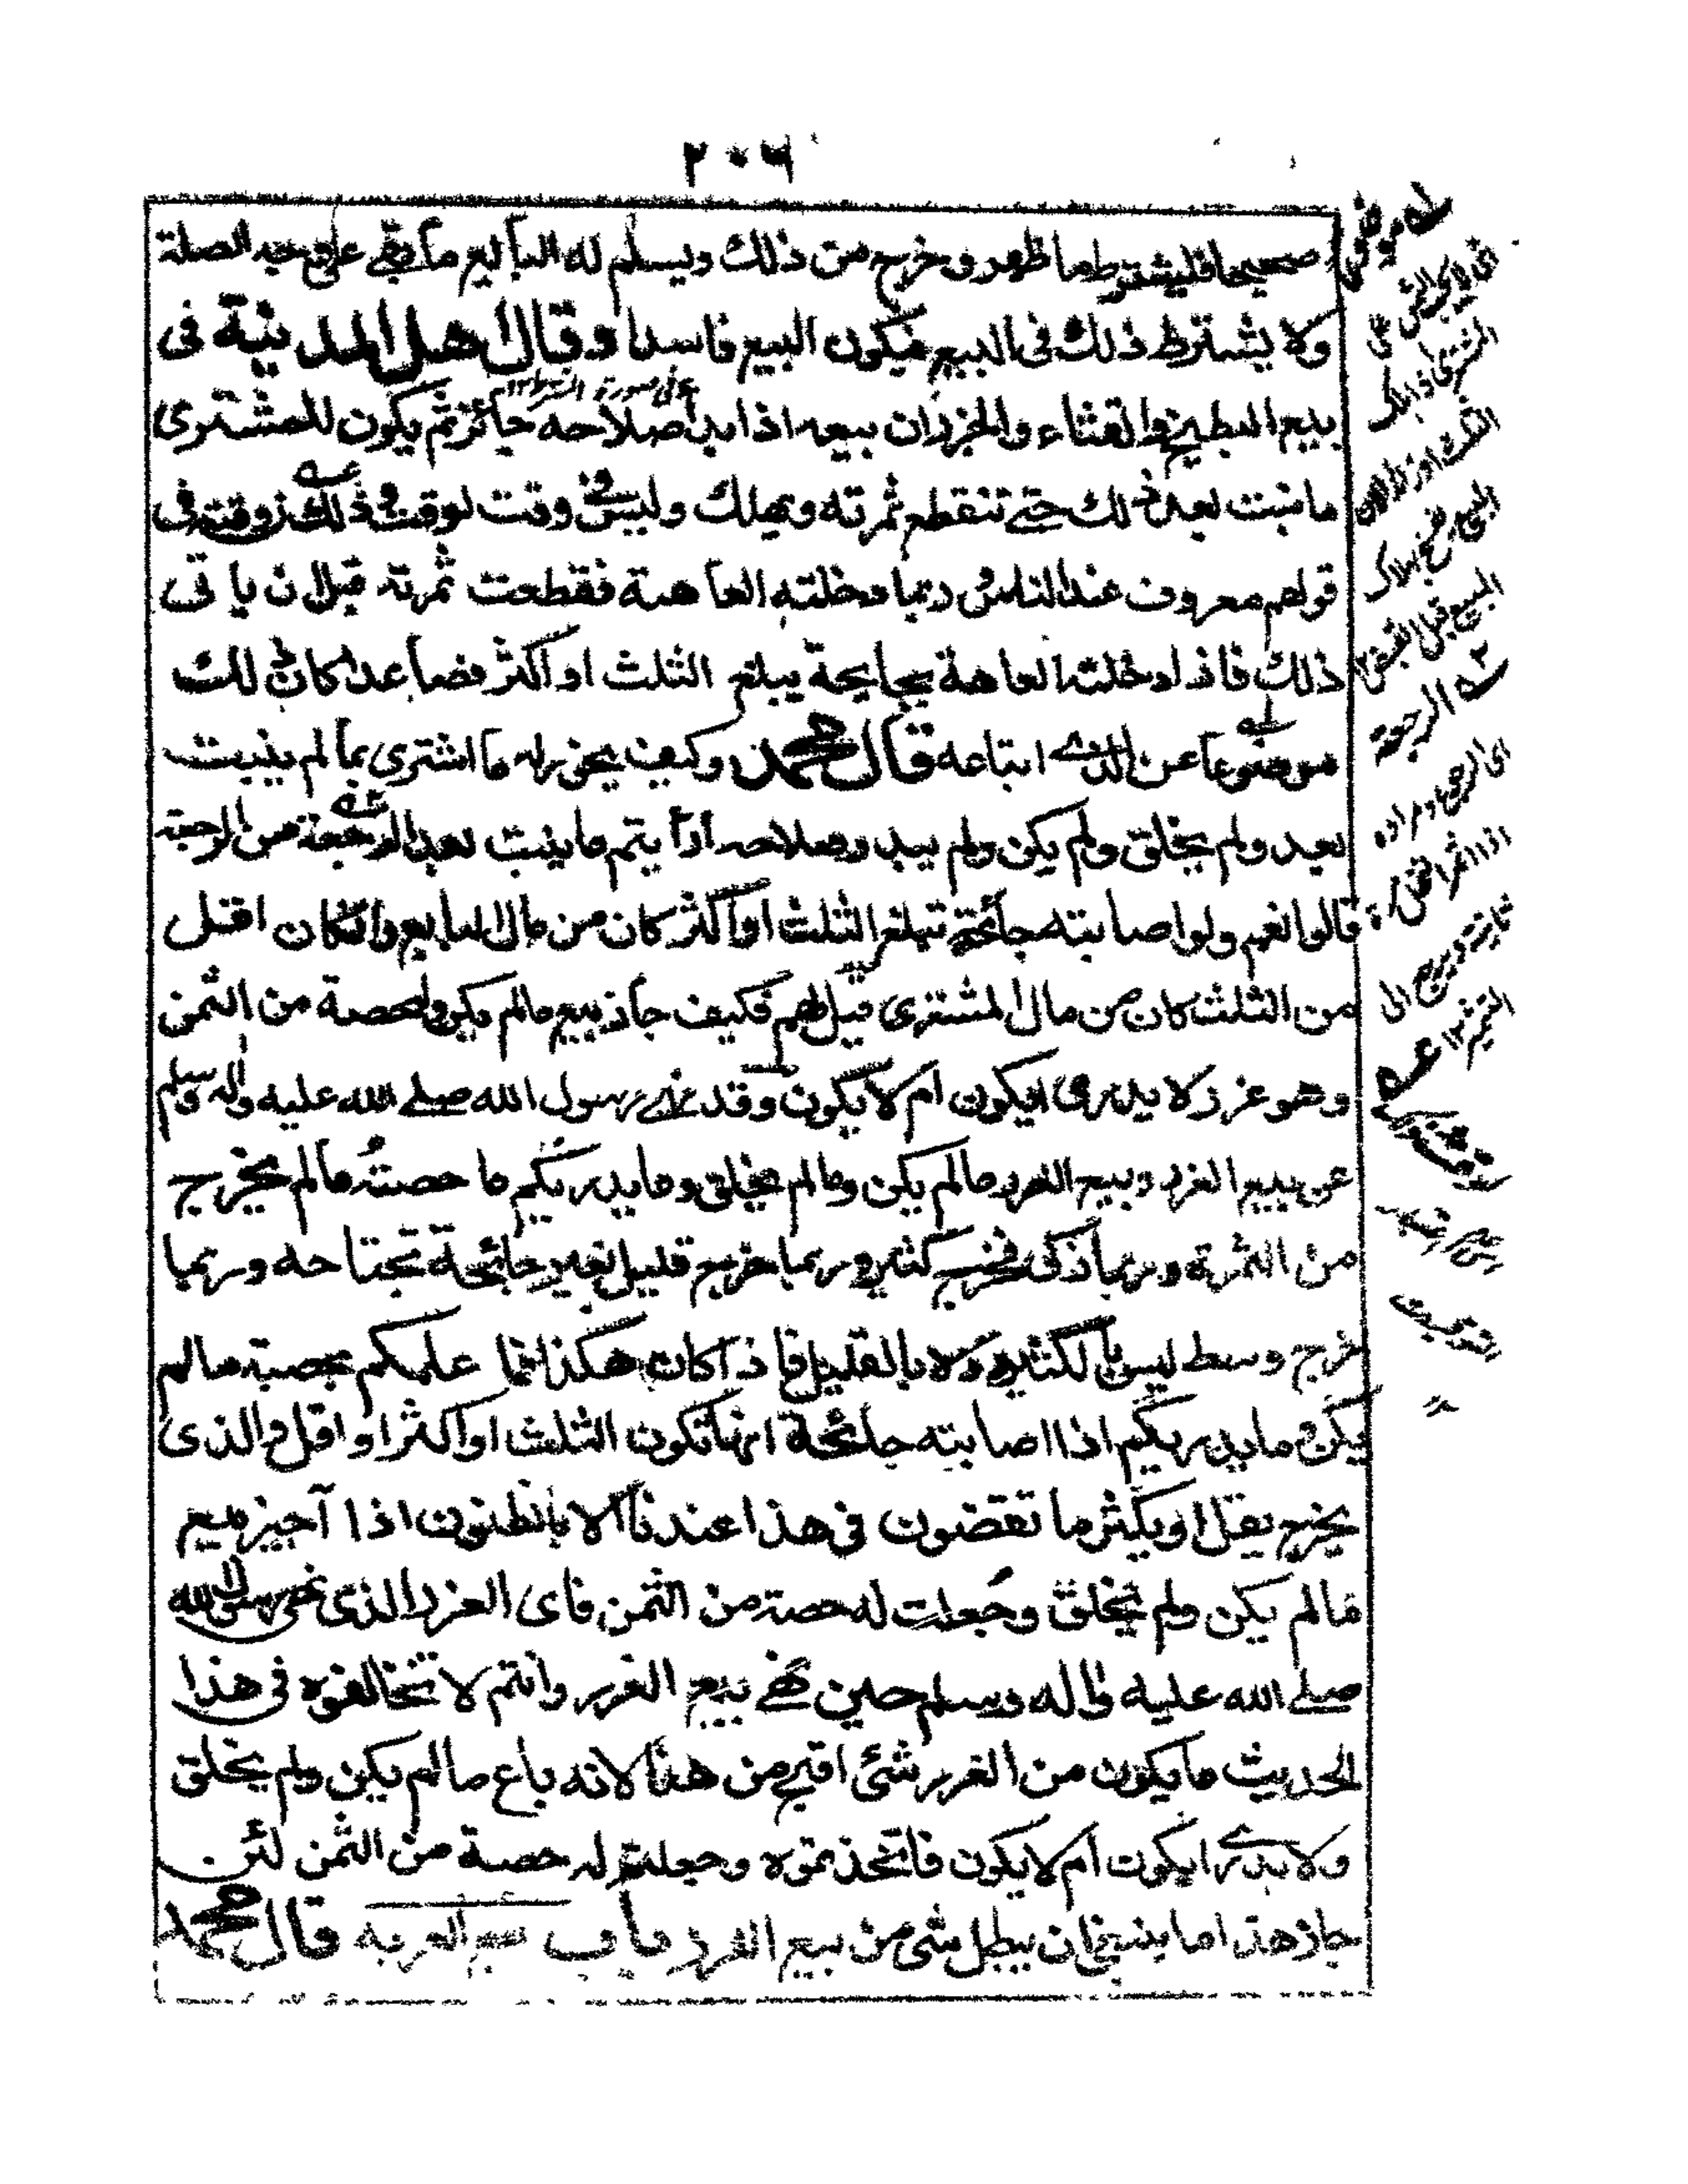 ٢٠٦
صحيحا فليشترط ما ظهر وخرج من ذلك ويسلم له البايع ما بقى على وجه الصلة
ولا يشترط ذلك فى البيع فيكون البيع فاسدا وقال اهل المدينة فى
بيع البطيخ والقثاء والخربزان بيعه اذا بدأ صلاحه جائز ثم يكون للمشترى
ما نبت بعد ذلك حتى تنقطع ثمرته ويهلك وليس فى وقت لوقت وذلك ان وقته فى
قولهم معروف عند الناس وربما دخلته العاهة فقطعت ثمرته قبل ان ياتى
ذلك فاذا دخلته العاهة بجايحة يبلغ الثلث او اكثر فصاعدا كان ذلك
موضوعا عن الذى ابتاعه قال محمد وكيف يجوز له ما اشترى بما لم ينبت
بعد ولم يخلق ولم يكن ولم يبد وصلاحه أرأيتم ما ينبت بعد الرجعة من الرجعة
قالوا نعم ولو اصابته جائحة تبلغ الثلث او اكثر كان من مال البايع وان كان اقل
من الثلث كان من مال المشترى قيل لهم فكيف جاز بيع مالم يكن وله حصة من الثمن
وهو غرر لا يدرى ايكون ام لا يكون وقد نهى رسول الله صلى الله عليه واله وسلم
عن بيع الغرر وبيع الغرر مالم يكن ومالم يخلق وما يدريكم ما حصته مالم يخرج
من الثمرة وربما ذكى فخرج كثير وربما خرج قليل بغير جائحة تجتاحه وربما
خرج وسط ليس بالكثير ولا بالقليل فاذا كان هكذا فما علمكم بحصة مالم
يكن وما يدريكم اذا اصابته جائحة انها تكون الثلث او اكثر او اقل والذى
يخرج يقل او يكثر ما تقضون فى هذا عندنا الا بالظنون اذا أجيز بيع
مالم يكن ولم يخلق وجعلت له حصة من الثمن فاى الغرر الذى نهى رسول الله
صلى الله عليه واله وسلم حين نهى بيع الغرر وانتم لا تخالفوه فى هذا
الحديث ما يكون من الغرر شئى اقبح من هذا لانه باع مالم يكن ولم يخلق
ولا يدرى ايكون ام لا يكون فاتخذتموه وجعلتم له حصة من الثمن لئن
جاز هذا ما ينبغى ان يبطل شى من بيع الغرر باب بيع العريه قال محمد